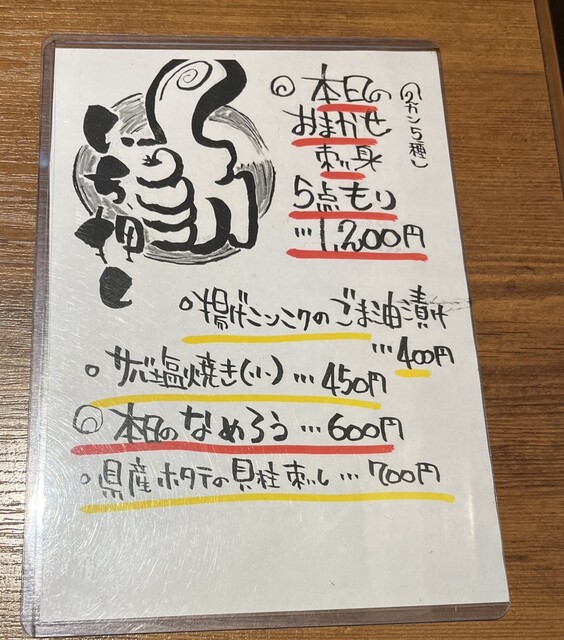 いち押し
◎本日の
おまかせ
刺身
5点もり
…1,200円
(9カン5種)
○揚げニンニクのごま油漬け
…400円
○サバ塩焼き(小)…450円
◎本日のなめろう…600円
○県産ホタテの貝柱刺し…700円